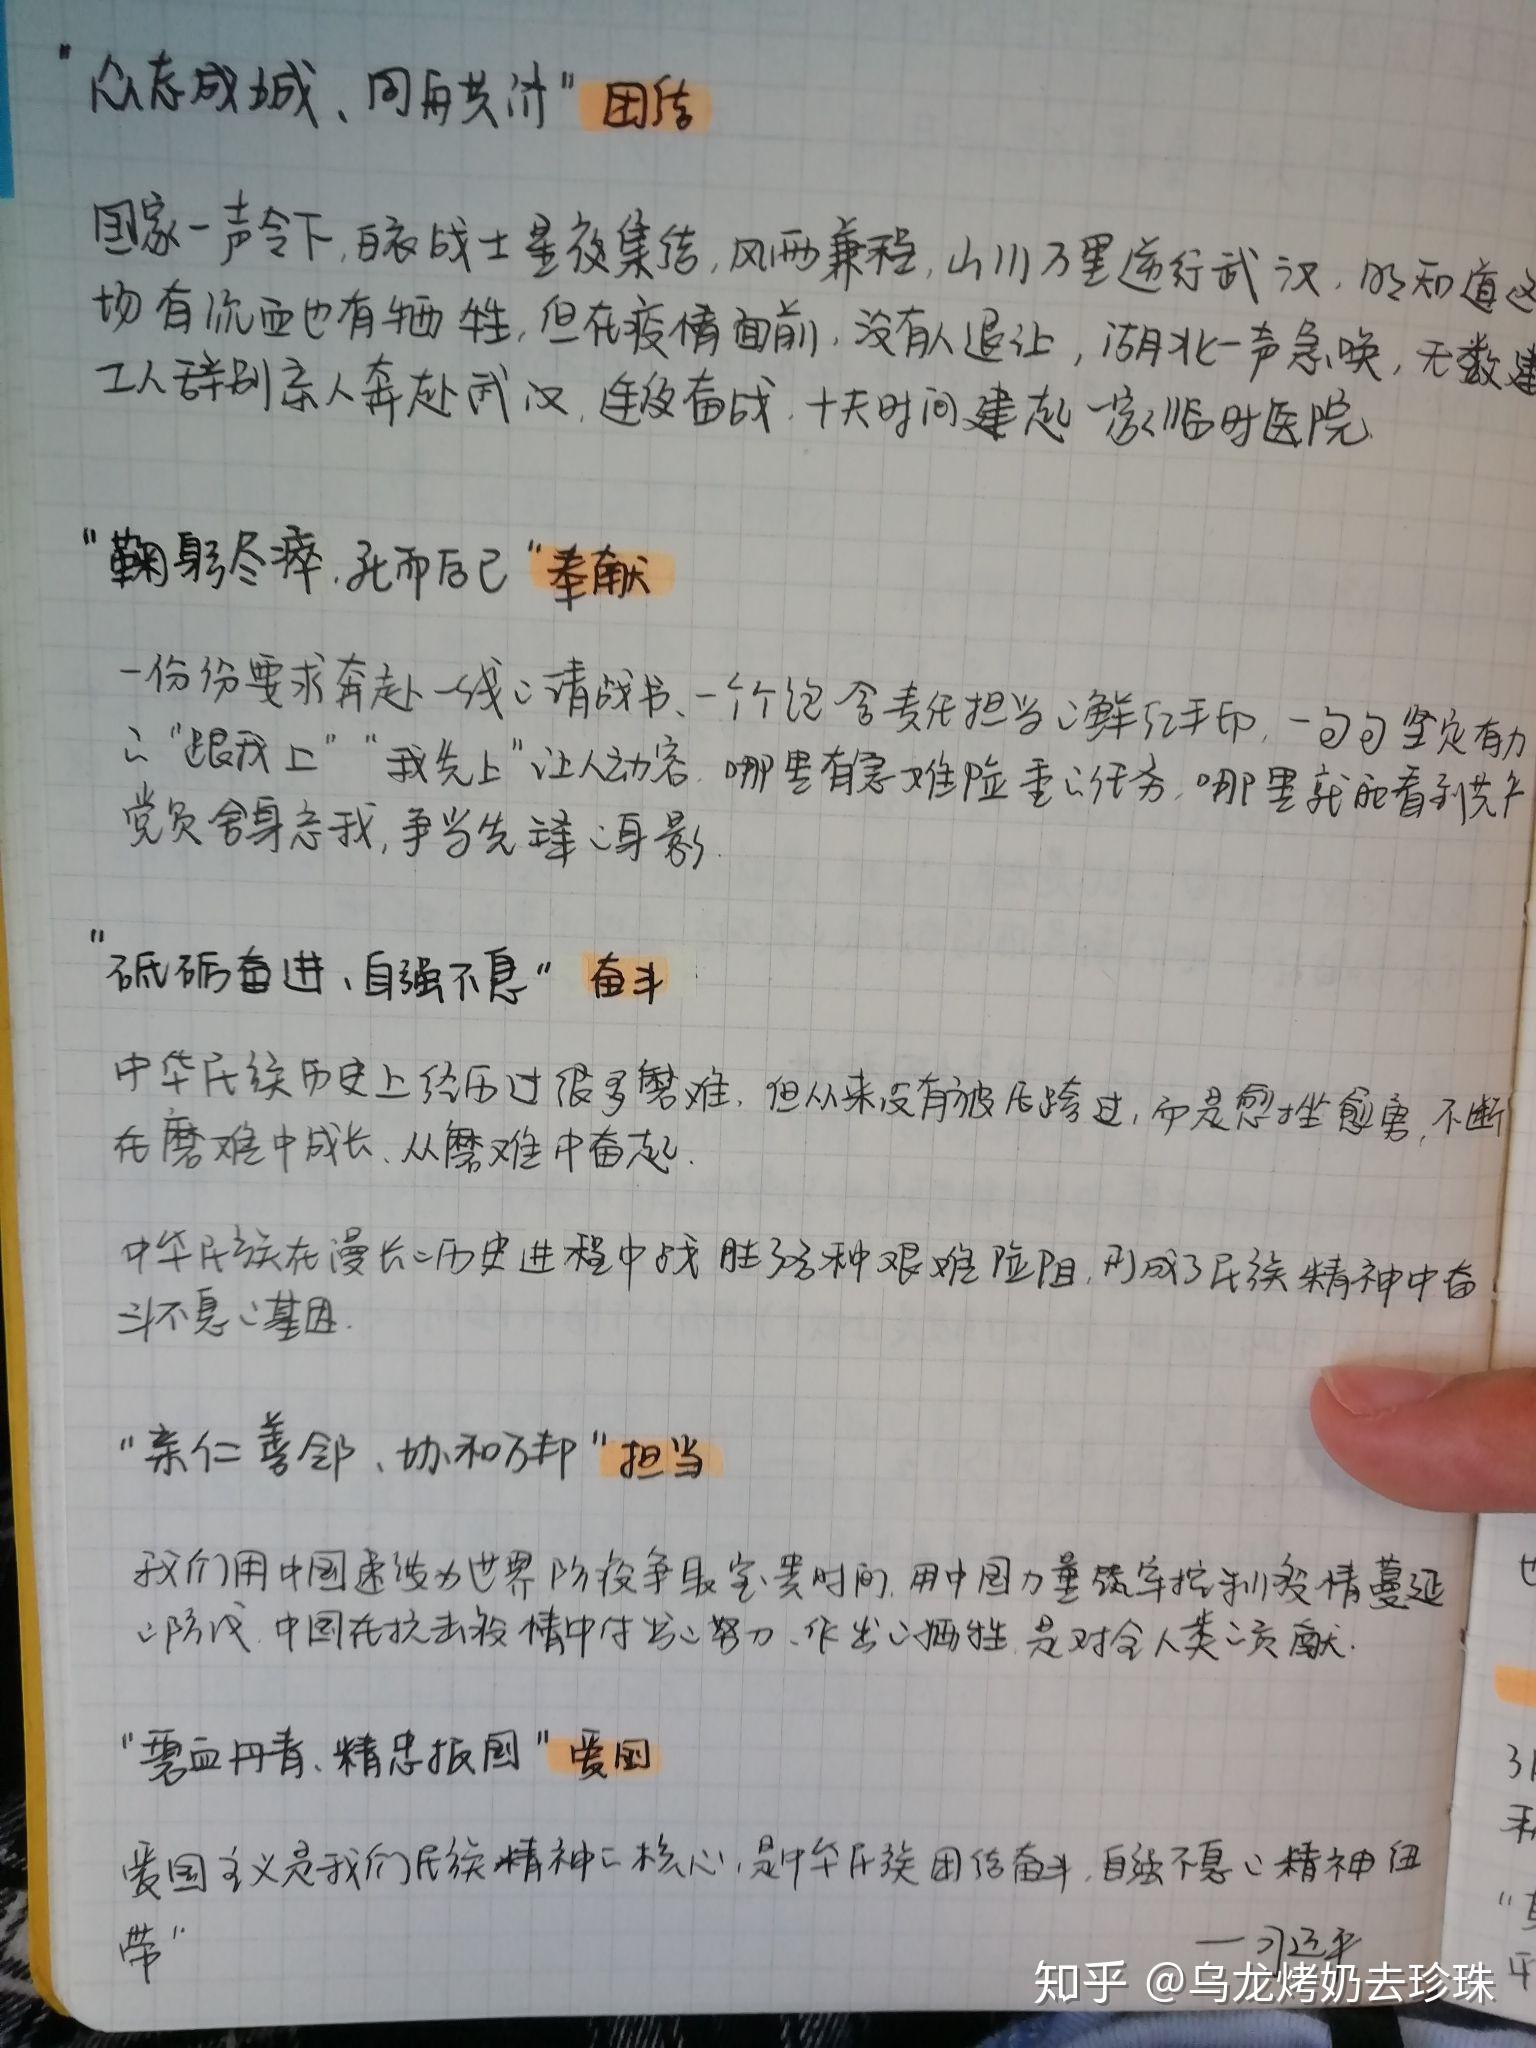 "众志成城、同舟共济" 团结
国家一声令下,白衣战士星夜集结,风雨兼程,山川万里逆行武汉,明知道这
场有流血也有牺牲,但在疫情面前,没有人退让,湖北一声急唤,无数建
工人辞别亲人奔赴武汉,连夜奋战,十天时间建起一家临时医院
"鞠躬尽瘁,死而后已" 奉献
一份份要求奔赴一线的请战书、一个个饱含责任担当的鲜红手印,一句句坚定有力
的"跟我上""我先上"让人动容.哪里有急难险重的任务,哪里就能看到共产
党员舍身忘我,争当先锋的身影.
"砥砺奋进、自强不息" 奋斗
中华民族历史上经历过很多磨难,但从来没有被压垮过,而是愈挫愈勇,不断
在磨难中成长、从磨难中奋起.
中华民族在漫长的历史进程中战胜了各种艰难险阻,形成了民族精神中奋
斗不息的基因.
"亲仁善邻、协和万邦" 担当
我们用中国速度为世界防疫争取宝贵时间,用中国力量筑牢控制疫情蔓延
的防线.中国在抗击疫情中付出的努力、作出的牺牲,是对全人类的贡献.
"碧血丹青、精忠报国" 爱国
爱国主义是我们民族精神的核心,是中华民族团结奋斗,自强不息的精神纽
带"
——习近平
知乎 @乌龙烤奶去珍珠